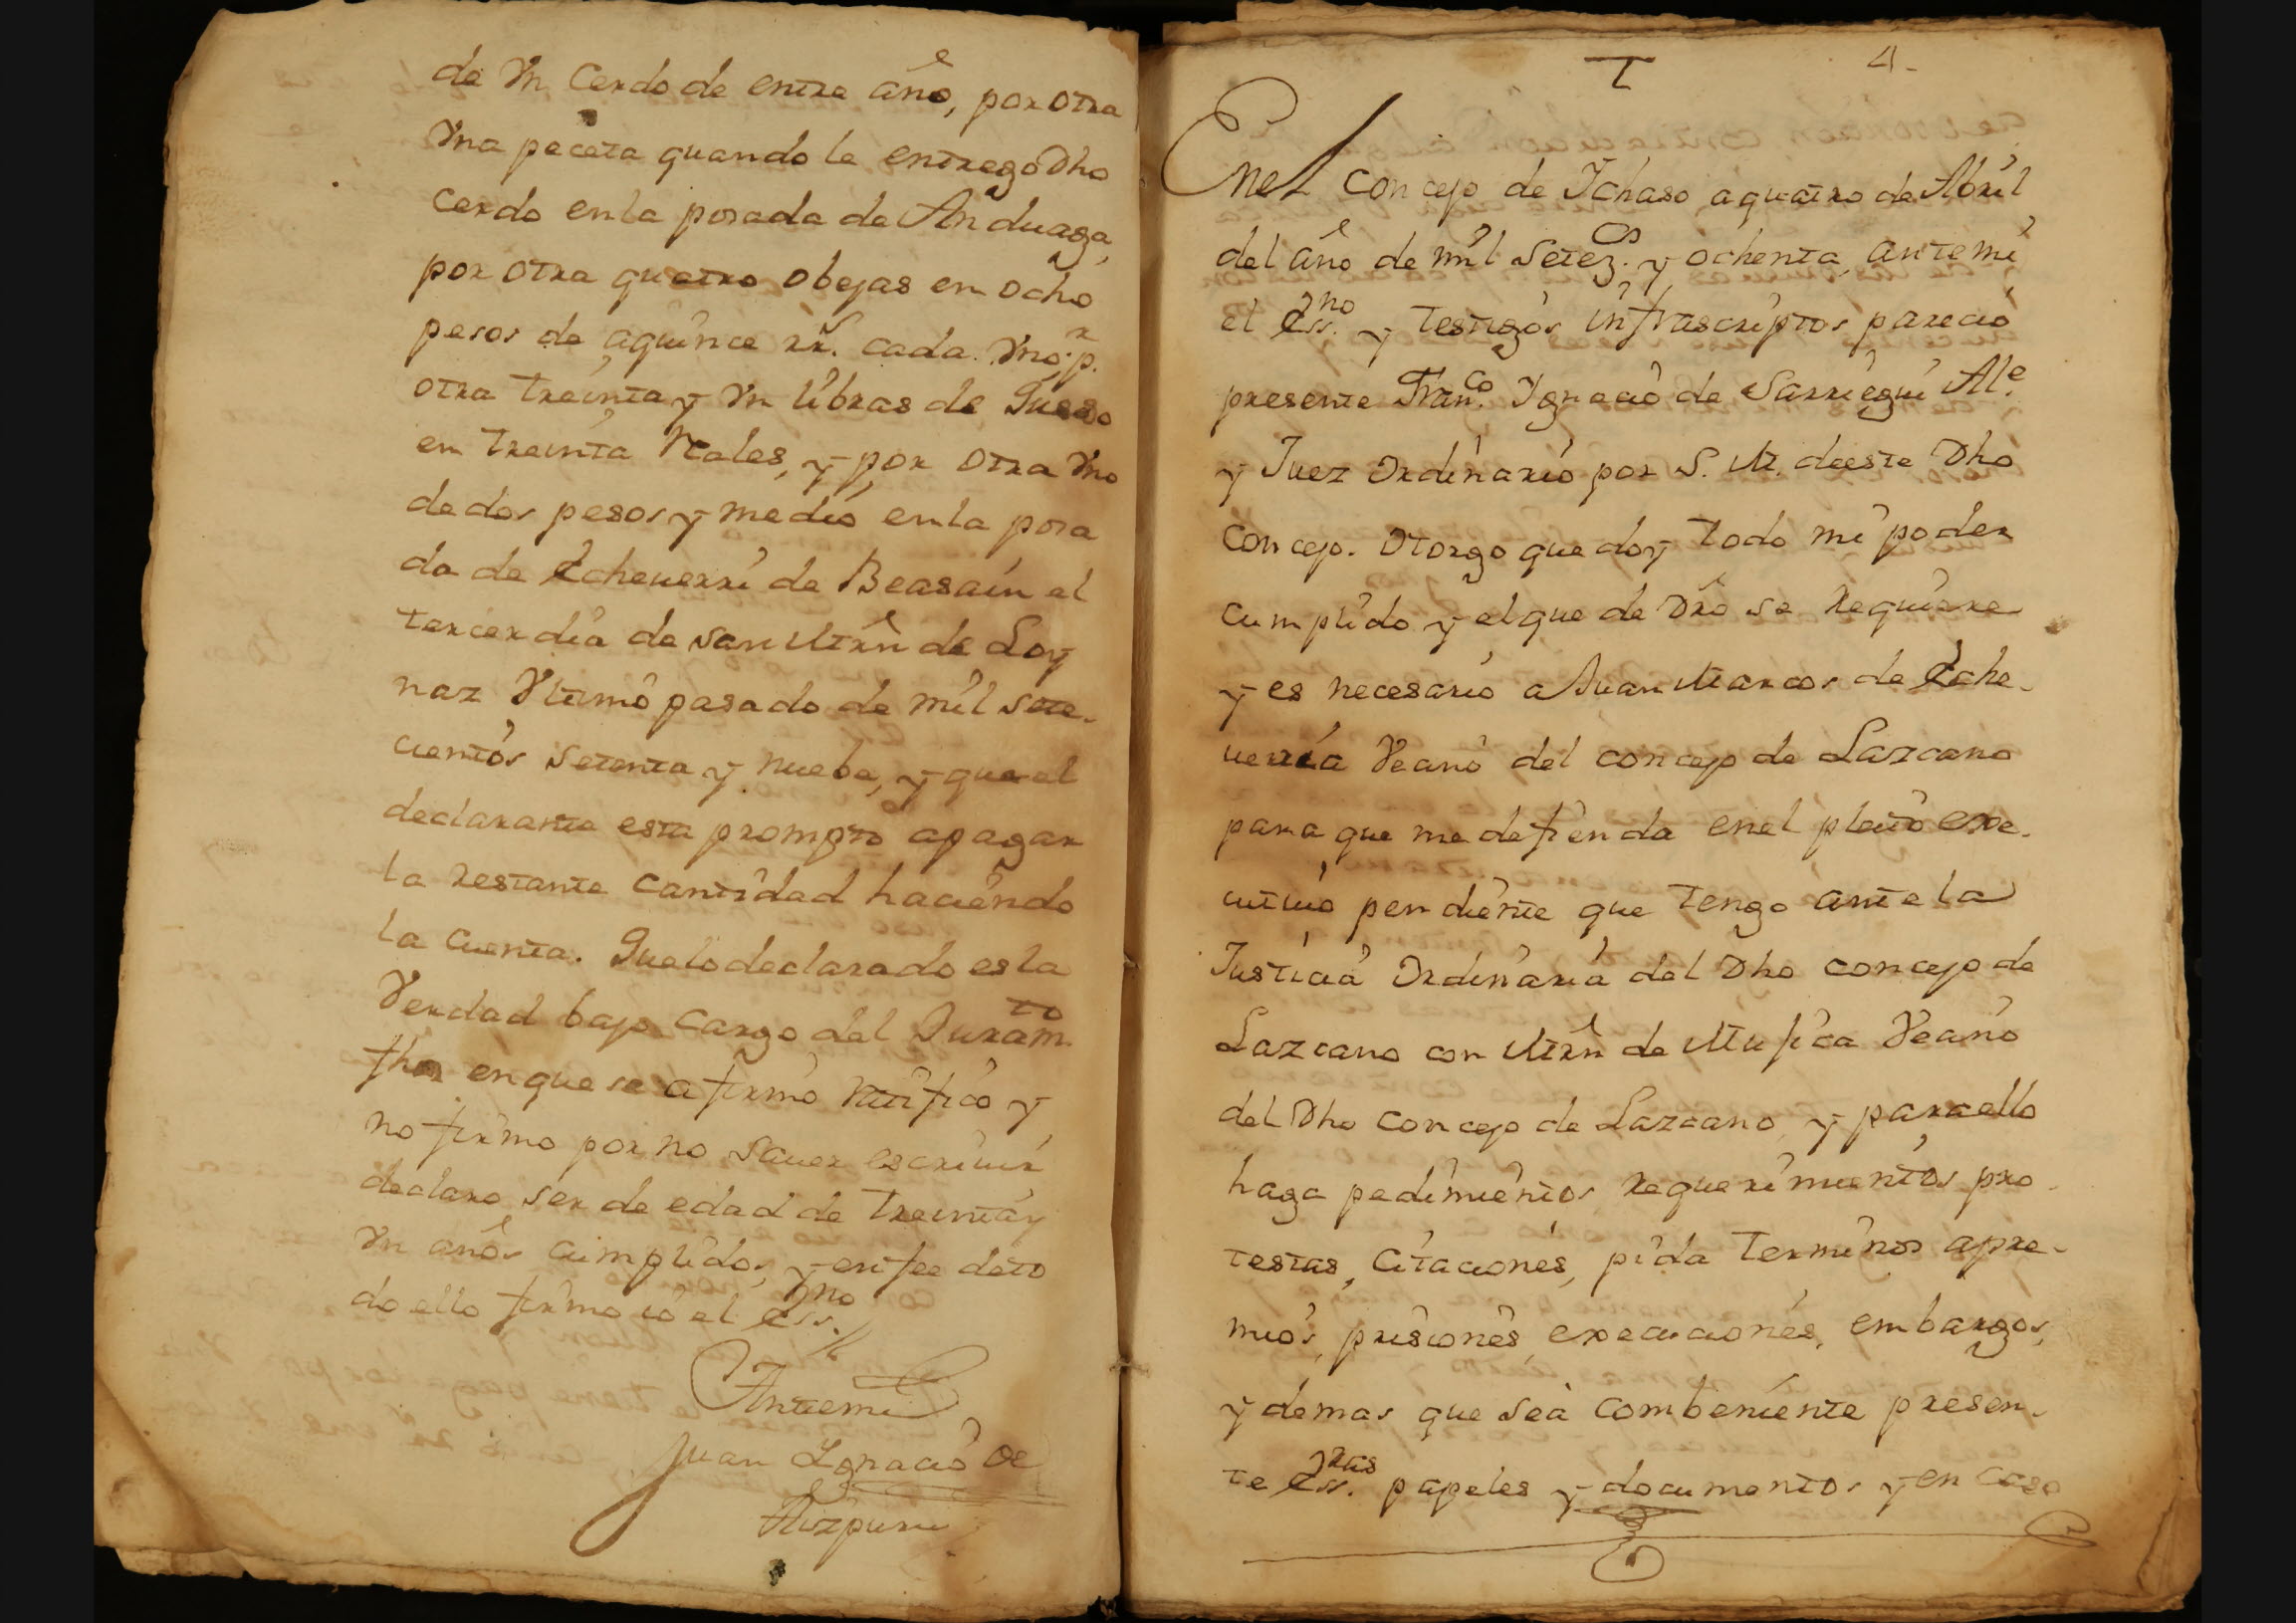 de Vn Cerdo de entre año, por otra
Vna peceta quando le entrego Dho
Cerdo enla posada de Anduaga,
por otra quatro obejas en ocho
pesos de aquince rr.s cada Vno: p.r
otra treinta y Vn libras de Queso
en treinta Reales, y por otra Vno
de dos pesos y medio enla posa
da de Echeuerri de Beasain el
tercer dia de san Mrn de Loy
naz Vltimo pasado de mil sete-
cientos setenta y nuebe, y que el
declarante esta prompto apagar
la restante Cantidad haciendo
la Cuenta. Quelo declarado es la
Verdad bajo cargo del Juram.to
fho enque se afirmo Ratifico y
no firmo por no Sauer escriuir
declaro ser de edad de treinta y
Vn años cumplidos, y en fee deto
do ello firme io el Ess.no
Antemi
Juan Ignacio de
Aizpuru
4-
Enel Concejo de Ichaso, a quatro de Abril
del año de mil Setez.os y ochenta, ante mi
el Ess.no y testigos infrascriptos parecio
presente Fran.co Ignacio de Sarriegui Al.e
y Juez Ordinario por S. M. deeste Dho
Concejo. Otorgo que doy todo mi poder
cumplido y el que de Dro se Requiere
y es necesario a Juan Marcos de Eche-
uerria Veano del concejo de Lazcano
para que me defienda enel pleito exe-
cutiuo pendiente que tengo ante la
Justicia Ordinaria del Dho concejo de
Lazcano con Mrn de Mujica Veano
del Dho Concejo de Lazcano, y para ello
haga pedimientos, Requerimientos, pro-
testas, Citaciones, pida terminos apre-
mios, prisiones, execuciones, embargos,
y demas que sea combeniente presen-
te Ess.ras papeles y documentos y en caso